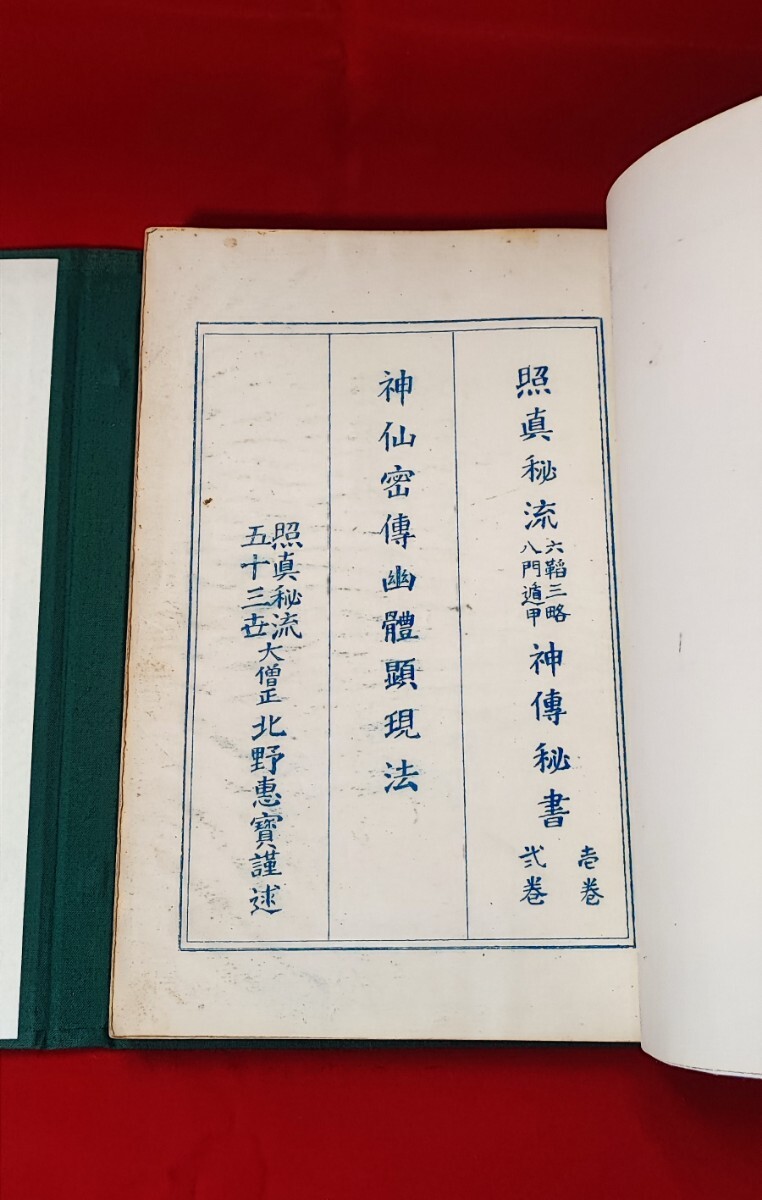 照真秘流
六韜三略
八門遁甲
神傳秘書
壱巻
弐巻
神仙密傳幽體顕現法
照真秘流
五十三世
大僧正
北野惠寶謹述